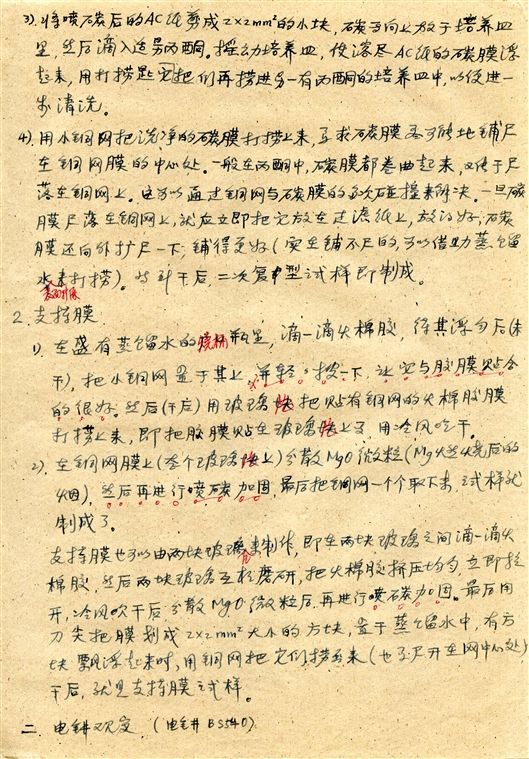 3).将喷碳后的AC纸剪成2×2mm²的小块，碳面向上放于培养皿
里，然后滴入适量丙酮。摇动培养皿，使溶尽AC纸的碳膜浮
起来，用打捞匙把它们再捞进另一有丙酮的培养皿中，以便进一
步清洗。
4).用小铜网把洗净的碳膜打捞上来，要求碳膜尽可能地铺展
在铜网膜的中心处。一般在丙酮中，碳膜都卷曲起来，不易于展
落在铜网上。这可以通过铜网与碳膜的多次碰撞来解决。一旦碳
膜展落在铜网上，就应立即把它放在过滤纸上，放的好，碳
膜还向外扩展一下，铺得更好（实在铺不展的，可以借助蒸馏
水来打捞）。当斗干后，二次复型试样即制成。
2.支持膜
1).在盛有蒸馏水的烧杯里，滴一滴火棉胶，待其浮匀后（未
干），把小铜网置于其上，并轻轻按一下，让它与胶膜贴合
的很好。然后（干后）用玻璃块把贴有铜网的火棉胶膜
打捞上来，即把胶膜贴在玻璃上了，用冷风吹干。
2).在铜网膜上（整个玻璃上）分散MgO微粒（Mg燃烧后的
烟），然后再进行喷碳加固，最后把铜网一个个取下来，试样就
制成了。
支持膜也可以由两块玻璃来制作，即在两块玻璃之间滴一滴火
棉胶，然后两块玻璃互相磨研，把火棉胶挤压均匀，立即拉
开，冷风吹干后，分散MgO微粒后，再进行喷碳加固。最后用
刀尖把膜划成2×2mm²大小的方块，置于蒸馏水中，有方
块飘浮起来时，用铜网把它们捞出来（也要展开在网中心处）
干后，就是支持膜试样。
二 电镜观察（电镜BS540）